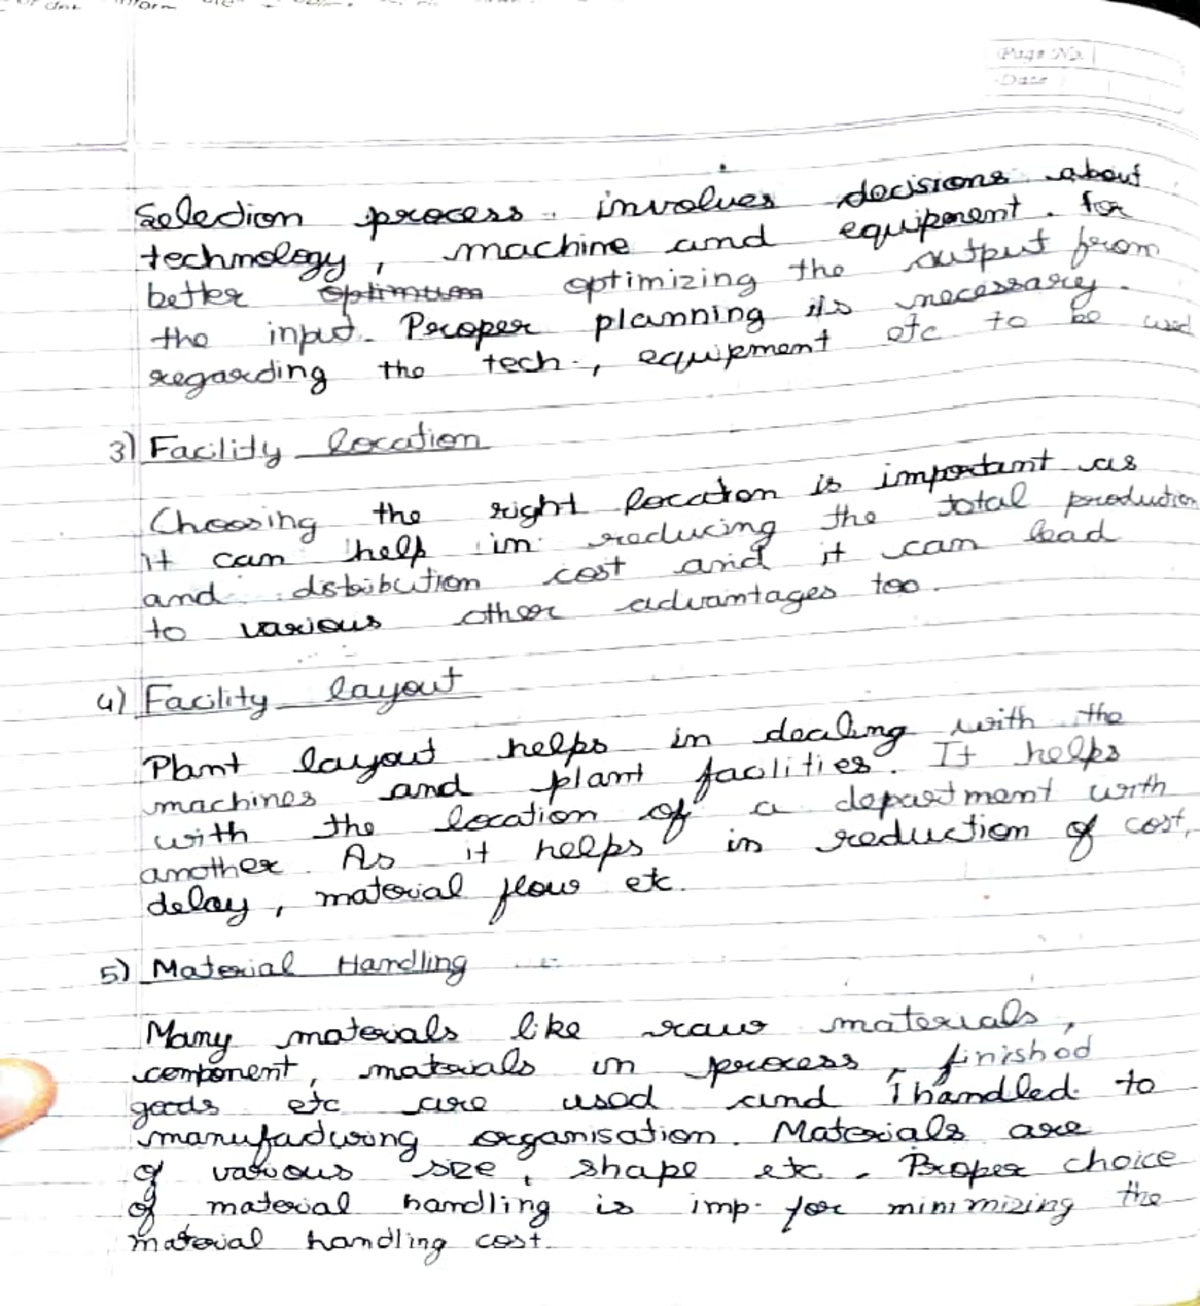 Page No.
Date
Selection process involves decisions about
technology, machine and equipment. for
better optimum optimizing the output from
the input. Proper planning is necessary.
regarding the tech., equipment etc to be used
3) Facility location
Choosing the right location is important as
it can help in reducing the total production
and distribution cost and it can lead
to various other advantages too.
4) Facility layout
Plant layout helps in dealing with the
machines and plant facilities. It helps
with the location of a department with
another. As it helps in reduction of cost,
delay, material flow etc.
5) Material Handling
Many materials like raw materials,
component, materials in process, finished
goods etc are used and handled to
manufacturing organisation. Materials are
of various size, shape etc. Proper choice
of material handling is imp. for minimizing the
material handling cost.